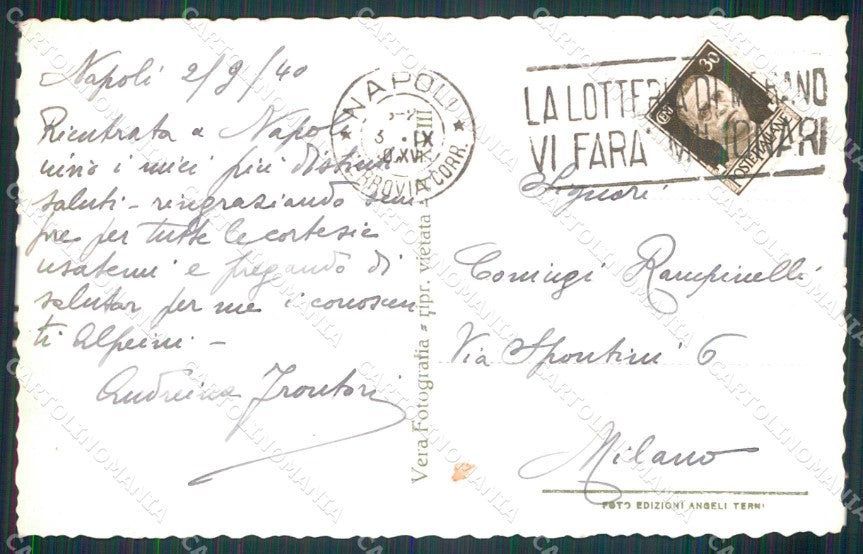 Napoli 2/9/40
Rientrata a Napoli
invio i miei più distinti
saluti - ringraziando sem-
pre per tutte le cortesie
usatemi e pregando di
salutar per me i conoscen
ti Alpini -
Andreina
NAPOLI
FERROVIA CORR.
LA LOTTERIA DI MERANO
VI FARA MILIONARI
POSTE ITALIANE
30
Signori
Coniugi Rampinelli
Via Spontini 6
Milano
Vera Fotografia - ripr. vietata -
FOTO EDIZIONI ANGELI TERNI
CARTOLINOMANIA